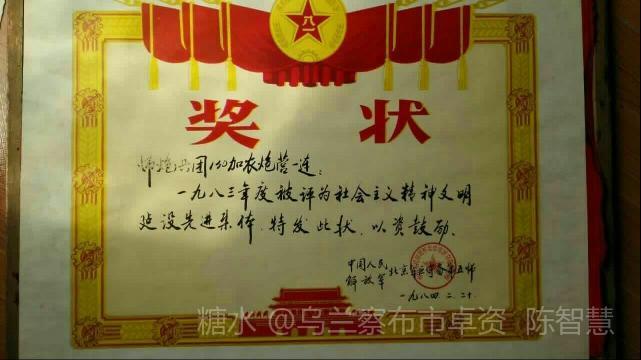 八一
奖状
师炮兵团130加农炮营一连：
一九八三年度被评为社会主义精神文明
建设先进集体，特发此状，以资鼓励。
中国人民
解放军 北京军区守备第五师
一九八四.二.二十
糖水@乌兰察布市卓资 陈智慧